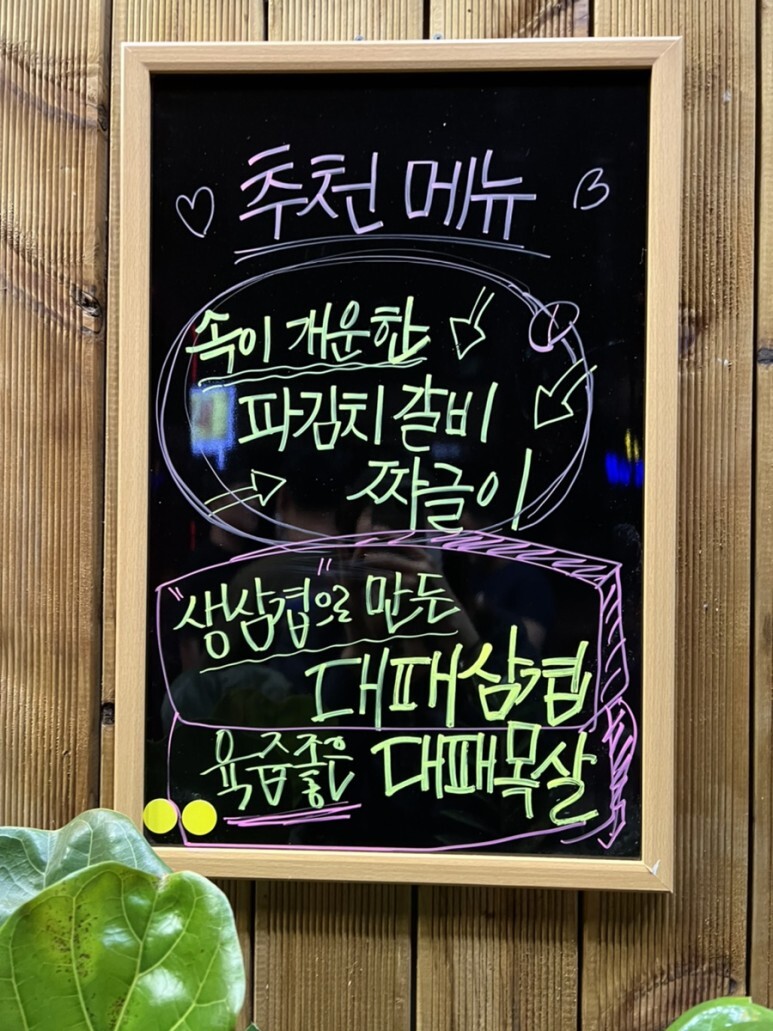 추천 메뉴
속이 개운한
파김치 갈비
짜글이
"생삼겹"으로 만든
대패삼겹
육즙좋은 대패목살